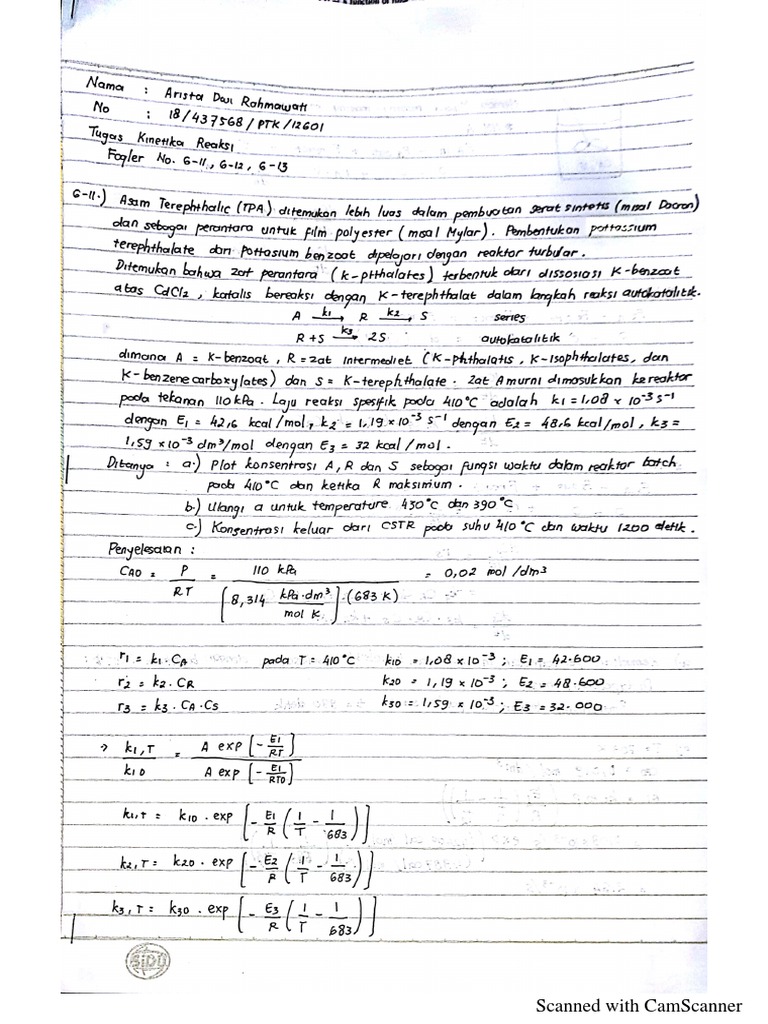 Nama : Arista Dwi Rahmawati
No : 18/437568/PTK/12601
Tugas Kinetika Reaksi
Fogler No. 6-11, 6-12, 6-13
6-11.) Asam Terephthalic (TPA) ditemukan lebih luas dalam pembuatan serat sintetis (misal Dacron)
dan sebagai perantara untuk film polyester (misal Mylar). Pembentukan pottassium
terephthalate dari Pottasium benzoat dipelajari dengan reaktor tubular.
Ditemukan bahwa zat perantara (K-phthalates) terbentuk dari dissosiasi K-benzoat
atas CdCl2, katalis bereaksi dengan K-terephthalat dalam langkah reaksi autokatalitik.
A —k1→ R —k2→ S series
R + S —k3→ 2S autokatalitik
dimana A = K-benzoat, R = zat intermediet (K-phthalatis, K-isophthalates, dan
K-benzenecarboxylates) dan S = K-terephthalate. Zat A murni dimasukkan ke reaktor
pada tekanan 110 kPa. Laju reaksi spesifik pada 410°C adalah k1 = 1,08 x 10⁻³ s⁻¹
dengan E1 = 42,6 kcal/mol, k2 = 1,19 x 10⁻³ s⁻¹ dengan E2 = 48,6 kcal/mol, k3 =
1,59 x 10⁻³ dm³/mol dengan E3 = 32 kcal/mol.
Ditanya : a.) Plot konsentrasi A, R dan S sebagai fungsi waktu dalam reaktor batch
pada 410°C dan ketika R maksimum.
b.) Ulangi a untuk temperature 430°C dan 390°C
c.) Konsentrasi keluar dari CSTR pada suhu 410°C dan waktu 1200 detik.
Penyelesaian :
CA0 = P / RT = 110 kPa / [8,314 kPa.dm³ / mol K].(683 K) = 0,02 mol/dm³
r1 = k1. CA pada T = 410°C k10 = 1,08 x 10⁻³ ; E1 = 42.600
r2 = k2. CR k20 = 1,19 x 10⁻³ ; E2 = 48.600
r3 = k3. CA. CS k30 = 1,59 x 10⁻³ ; E3 = 32.000
→ k1,T / k10 = A exp [- E1/RT] / A exp [- E1/RT0]
k1,T = k10 . exp [- E1/R (1/T - 1/683)]
k2,T = k20 . exp [- E2/R (1/T - 1/683)]
k3,T = k30 . exp [- E3/R (1/T - 1/683)]
SIDU
Scanned with CamScanner